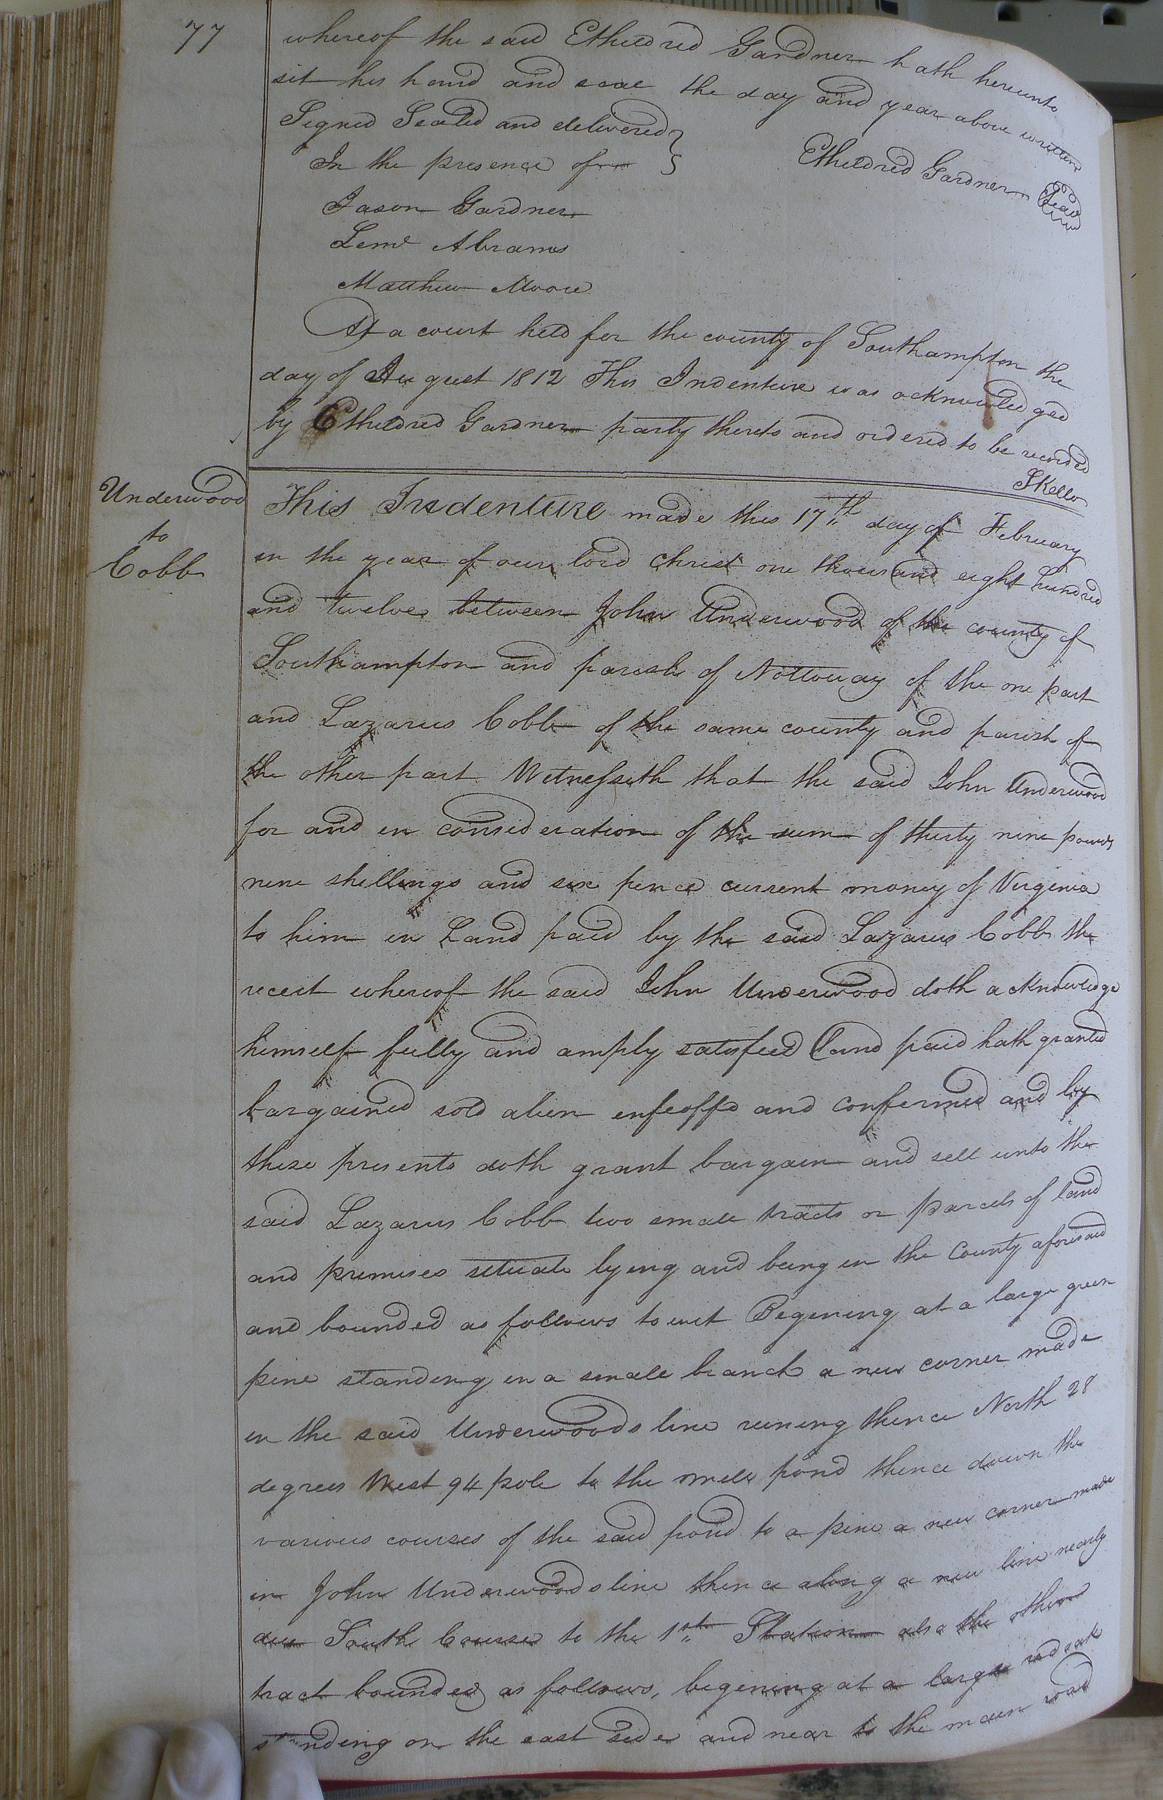 77
whereof the said Etheldred Gardner hath hereunto
set his hand and seal the day and year above written
Signed Sealed and delivered }
In the presence of
Etheldred Gardner Seal
Jason Gardner
Leml Abrams
Matthew Moore
At a court held for the county of Southampton the
day of August 1812 This Indenture was acknowledged
by Etheldred Gardner party thereto and ordered to be recorded
SKello
Underwood
to
Cobb
This Indenture made this 17th day of February
in the year of our lord Christ one thousand eight hundred
and twelve between John Underwood of the county of
Southampton and parish of Nottoway of the one part
and Lazarus Cobb of the same county and parish of
the other part Witnesseth that the said John Underwood
for and in consideration of the sum of thirty nine pounds
nine shillings and six pence current money of Virginia
to him in hand paid by the said Lazarus Cobb the
receit whereof the said John Underwood doth acknowledge
himself fully and amply satisfied and paid hath granted
bargained sold alien enfeoffd and confermed and by
these presents doth grant bargain and sell unto the
said Lazarus Cobb two small tracts or parcels of land
and premises situate lying and being in the County aforesaid
and bounded as follows to wit Begening at a large green
pine standing in a small branch a new corner made
in the said Underwoods line runing thence North 28
degrees West 94 pole to the mill pond thence down the
various courses of the said pond to a pine a new corner made
in John Underwoods line thence along a new line nearly
due South Course to the 1st Station also the other
tract bounded as follows, begening at a large red oak
standing on the east side and near to the main road